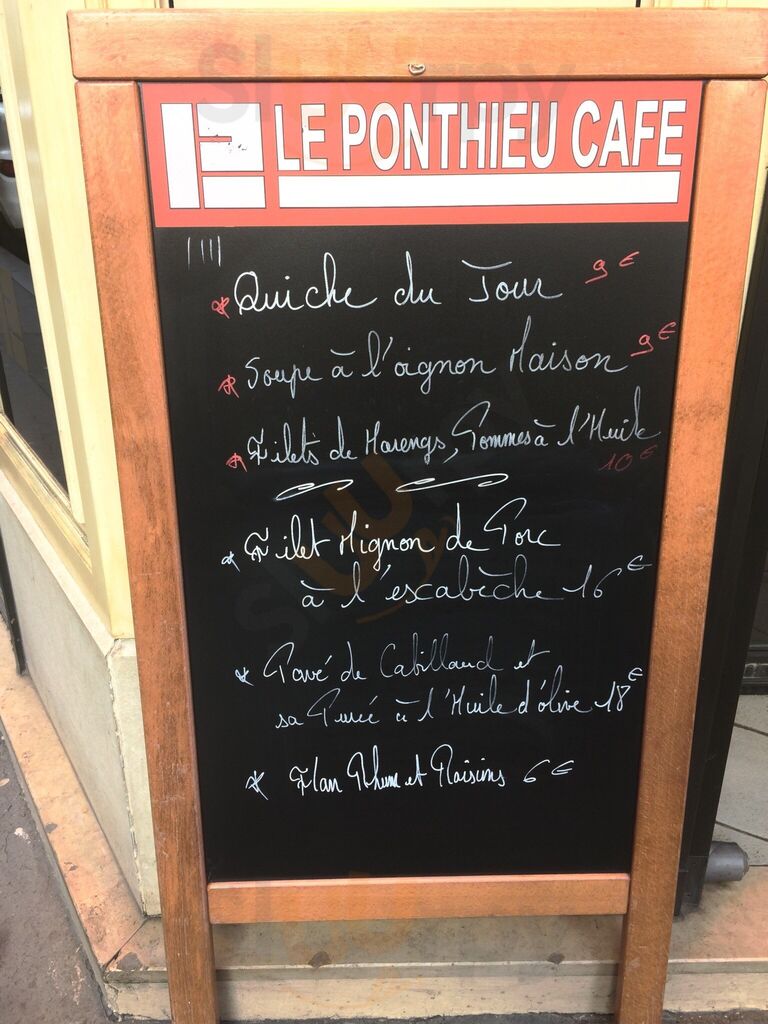 LE PONTHIEU CAFE
Quiche du Jour 9€
Soupe à l'oignon Maison 9€
Filets de Harengs, Pommes à l'Huile
10€
Filet Mignon de Porc
à l'escabèche 16€
Pavé de Cabillaud et
sa Purée à l'Huile d'olive 18€
Flan Rhum et Raisins 6€